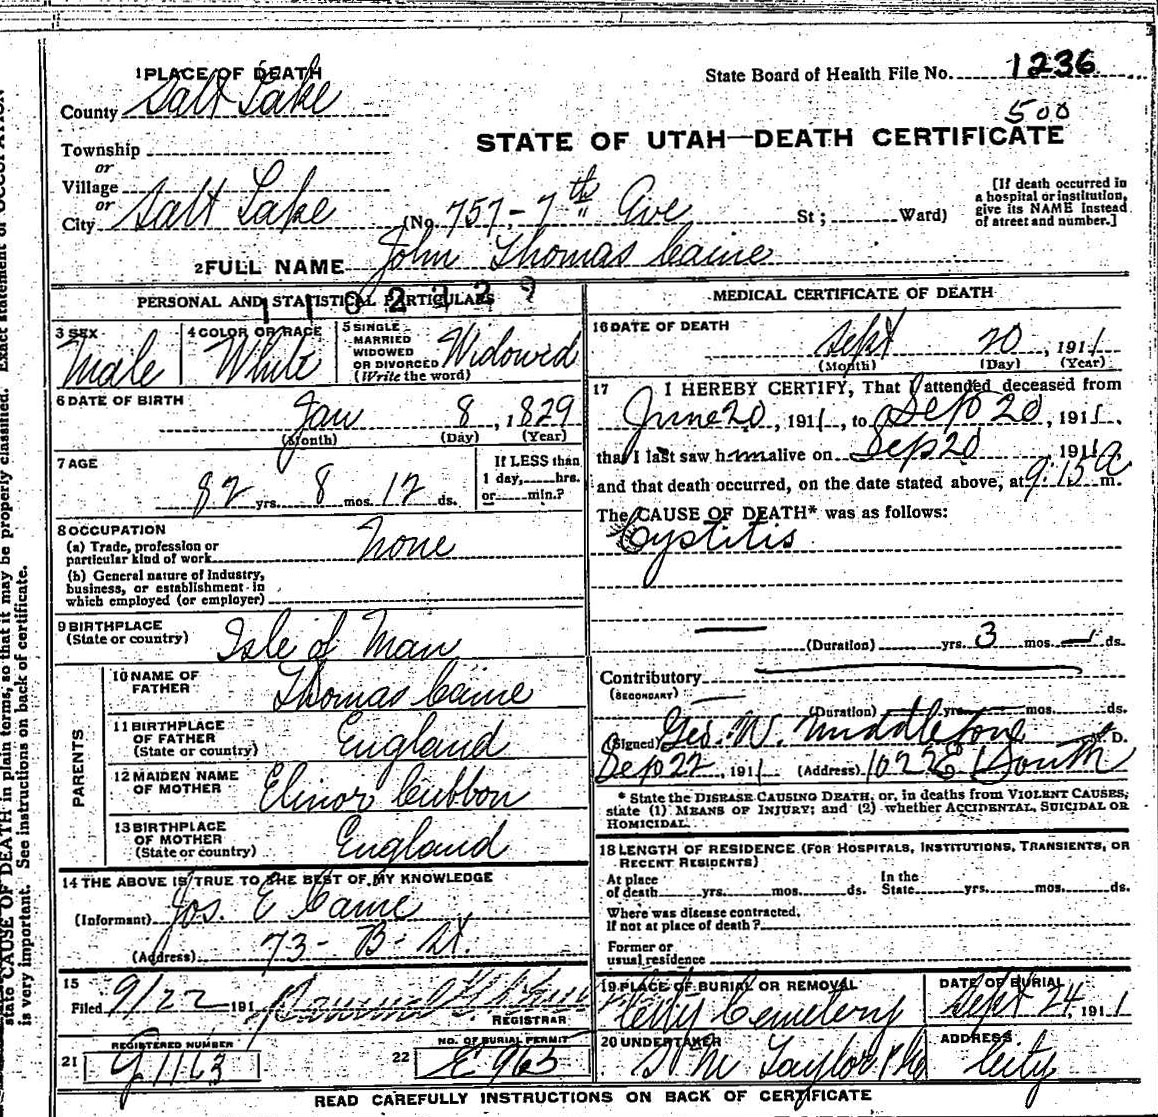 1 PLACE OF DEATH
State Board of Health File No. 1236
County Salt Lake
500
STATE OF UTAH—DEATH CERTIFICATE
Township
or
Village
or
City Salt Lake (No. 757 - 7th Ave St; Ward)
[If death occurred in a hospital or institution, give its NAME instead of street and number.]
2 FULL NAME John Thomas Caine
PERSONAL AND STATISTICAL PARTICULARS
3 SEX Male
4 COLOR OR RACE White
5 SINGLE MARRIED WIDOWED OR DIVORCED (Write the word) Widowed
6 DATE OF BIRTH
Jan 8, 1829
(Month) (Day) (Year)
7 AGE
82 yrs. 8 mos. 12 ds.
If LESS than 1 day, hrs. or min.?
8 OCCUPATION
(a) Trade, profession or particular kind of work None
(b) General nature of industry, business, or establishment in which employed (or employer)
9 BIRTHPLACE
(State or country) Isle of Man
PARENTS
10 NAME OF FATHER Thomas Caine
11 BIRTHPLACE OF FATHER (State or country) England
12 MAIDEN NAME OF MOTHER Elinor Cubbon
13 BIRTHPLACE OF MOTHER (State or country) England
14 THE ABOVE IS TRUE TO THE BEST OF MY KNOWLEDGE
(Informant) Jos. E Caine
(Address) 73 - B - St.
15
Filed 9/22 191
REGISTRAR
REGISTERED NUMBER
21 G 1163
NO. OF BURIAL PERMIT
22 E 965
MEDICAL CERTIFICATE OF DEATH
16 DATE OF DEATH
Sept 20, 1911
(Month) (Day) (Year)
17 I HEREBY CERTIFY, That I attended deceased from
June 20, 1911, to Sep 20, 1911.
that I last saw him alive on Sep 20 1911
and that death occurred, on the date stated above, at 9:15 a m.
The CAUSE OF DEATH* was as follows:
Cystitis
(Duration) yrs. 3 mos. ds.
Contributory
(SECONDARY)
(Duration) yrs. mos. ds.
(Signed) Geo. W. Middleton M. D.
Sep 22, 1911 (Address) 1022 E 1 South
* State the DISEASE CAUSING DEATH; or, in deaths from VIOLENT CAUSES, state (1) MEANS OF INJURY; and (2) whether ACCIDENTAL, SUICIDAL OR HOMICIDAL.
18 LENGTH OF RESIDENCE (FOR HOSPITALS, INSTITUTIONS, TRANSIENTS, OR RECENT RESIDENTS)
At place of death yrs. mos. ds. In the State yrs. mos. ds.
Where was disease contracted, If not at place of death?
Former or usual residence
19 PLACE OF BURIAL OR REMOVAL City Cemetery
DATE OF BURIAL Sept 24 1911
20 UNDERTAKER S M Taylor
ADDRESS City
READ CAREFULLY INSTRUCTIONS ON BACK OF CERTIFICATE
state CAUSE OF DEATH in plain terms, so that it may be properly classified. Exact statement of OCCUPATION
is very important. See instructions on back of certificate.